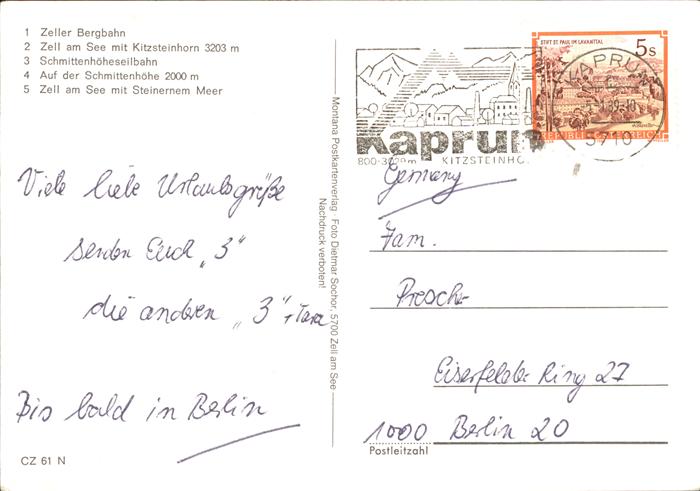 1 Zeller Bergbahn
2 Zell am See mit Kitzsteinhorn 3203 m
3 Schmittenhöheseilbahn
4 Auf der Schmittenhöhe 2000 m
5 Zell am See mit Steinernem Meer
Viele liebe Urlaubsgrüße
senden Euch „3"
die anderen „3" + Tara
Bis bald in Berlin
CZ 61 N
Montana Postkartenverlag · Foto Dietmar Sochor, 5700 Zell am See
Nachdruck verboten!
Kaprun
800-3029 m KITZSTEINHO
STIFT ST. PAUL IM LAVANTTAL
5 S
REPUBLIK ÖSTERREICH
KAPRUN
5710
Germany
Fam.
Presche
Eiserfelder Ring 27
1000 Berlin 20
Postleitzahl